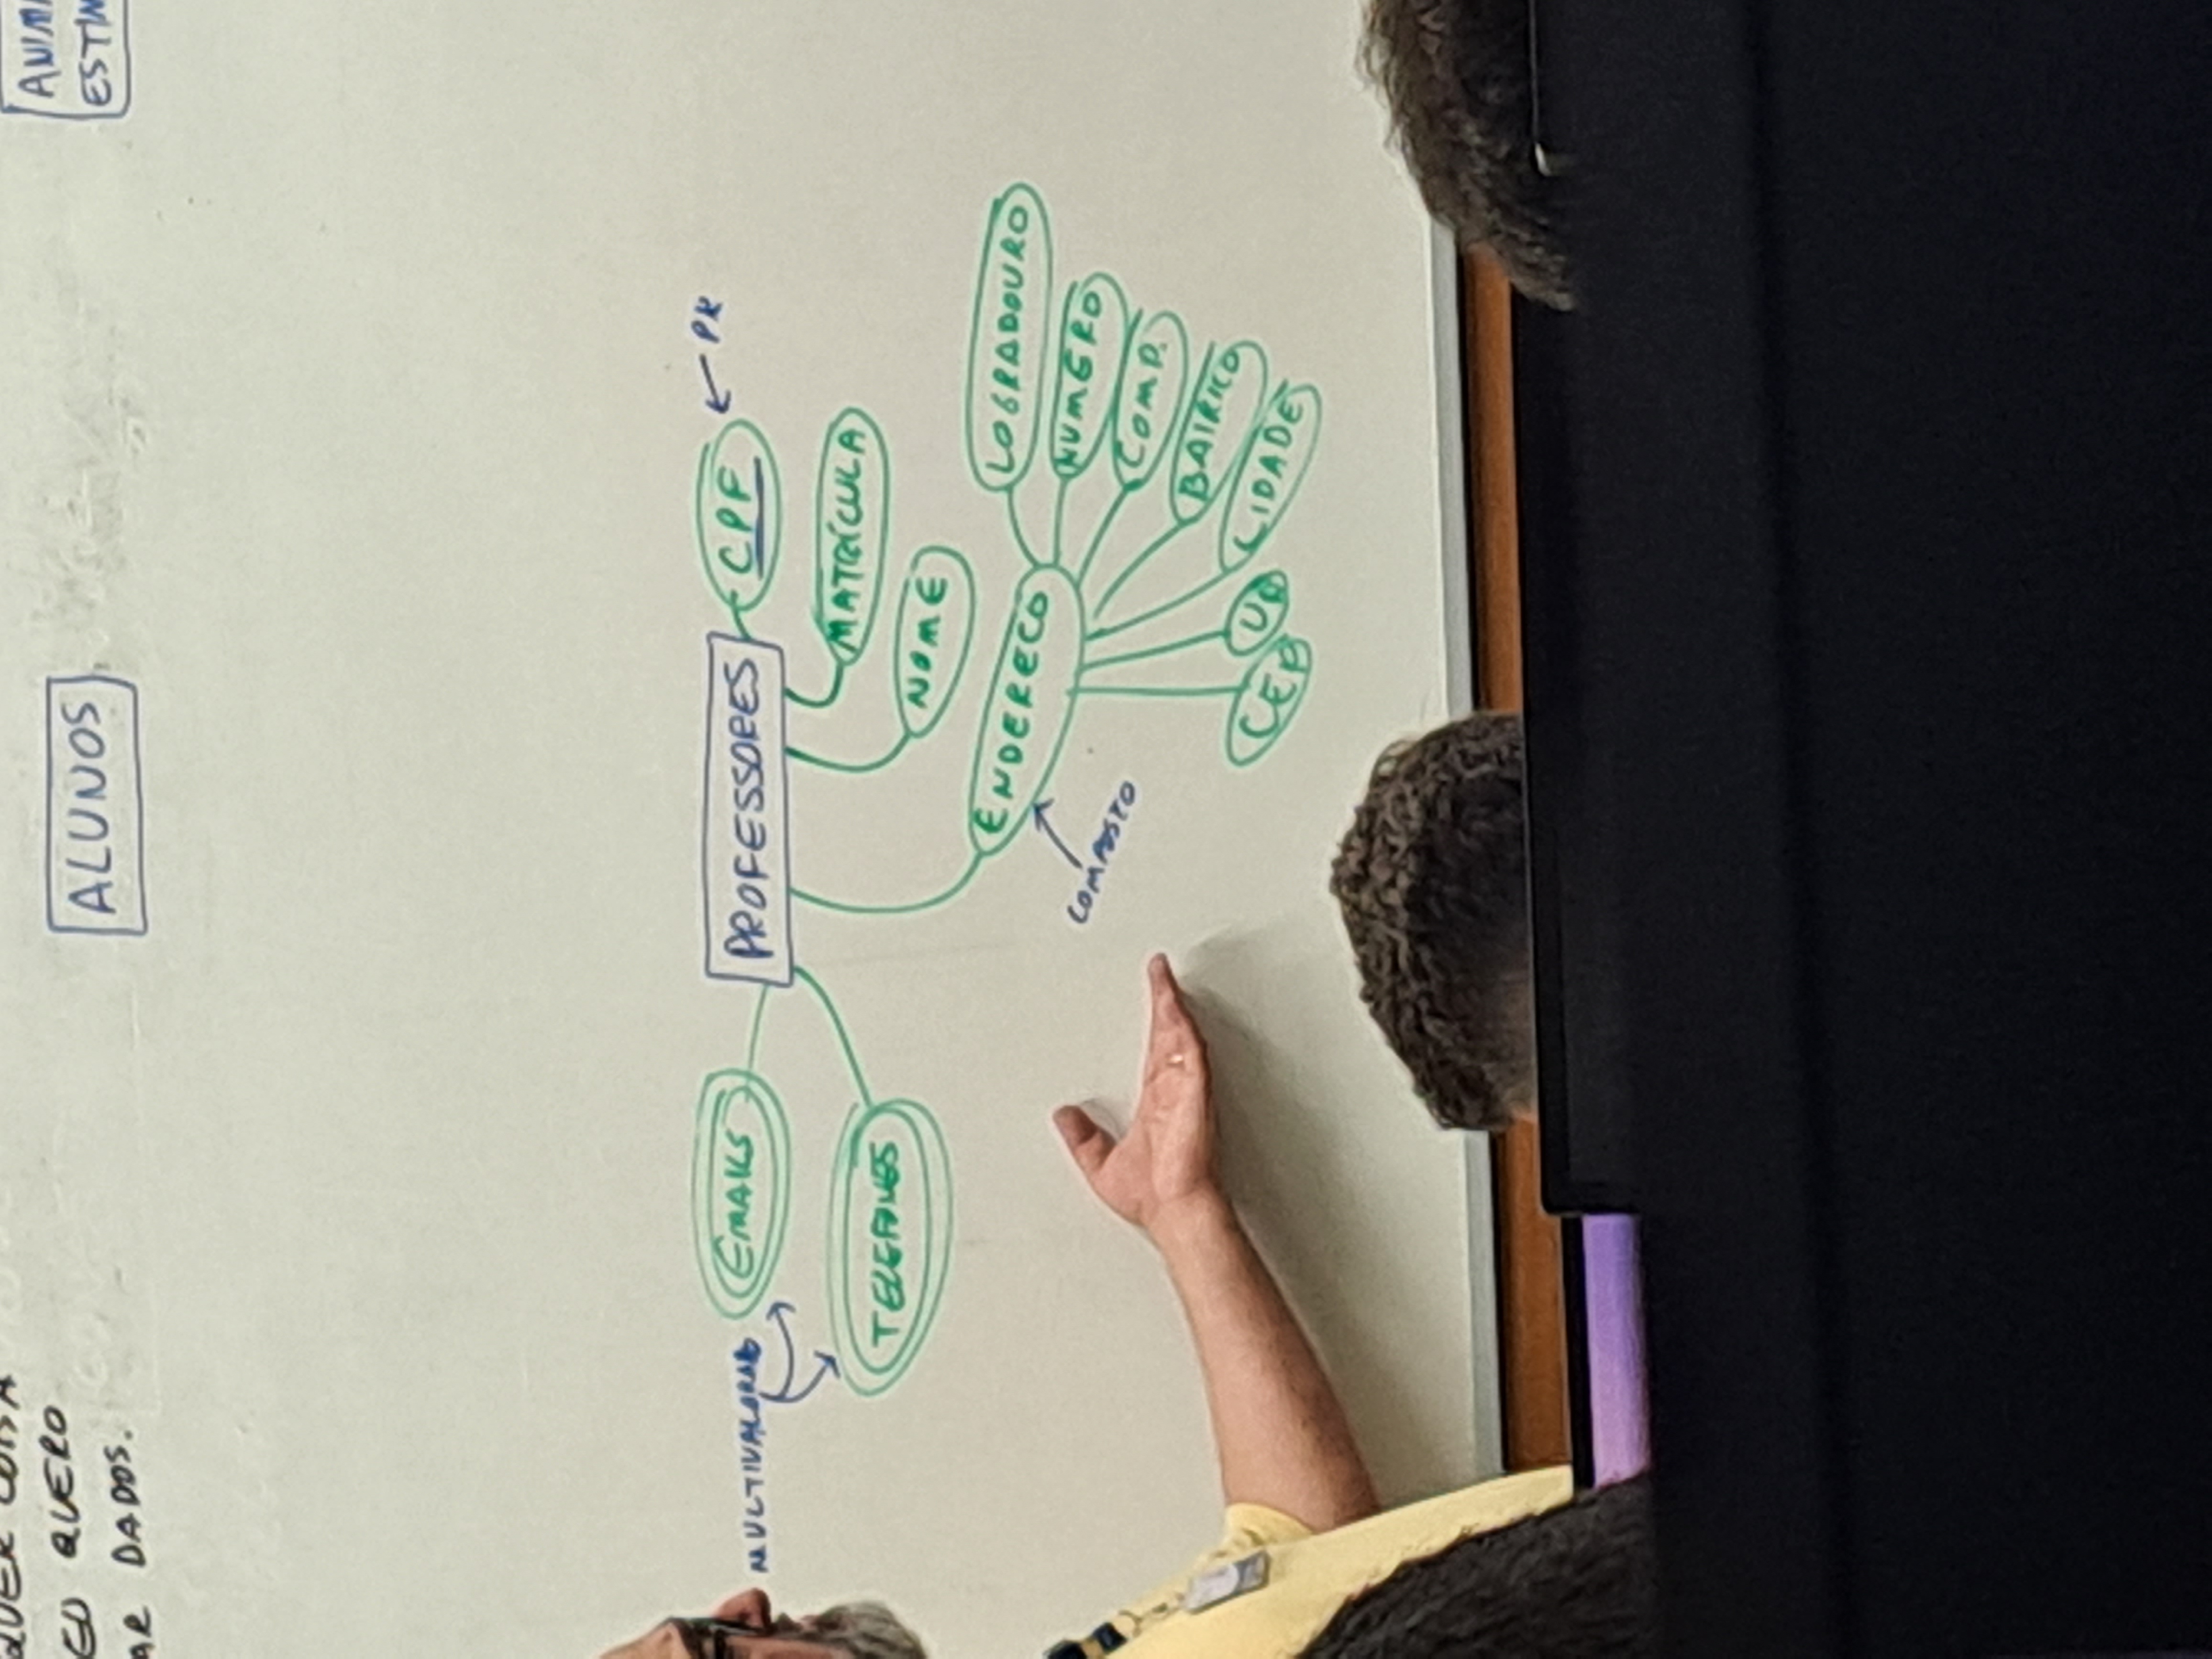 QUER COISA
EU QUERO
AR DADOS.
ALUNOS
ANIMA
ESTIM
MULTIVALORADO
EMAILS
TELEFONES
PROFESSORES
CPF
PK
MATRÍCULA
NOME
ENDERECO
COMPOSTO
LOGRADOURO
NUMERO
COMP.
BAIRRO
CIDADE
UF
CEP